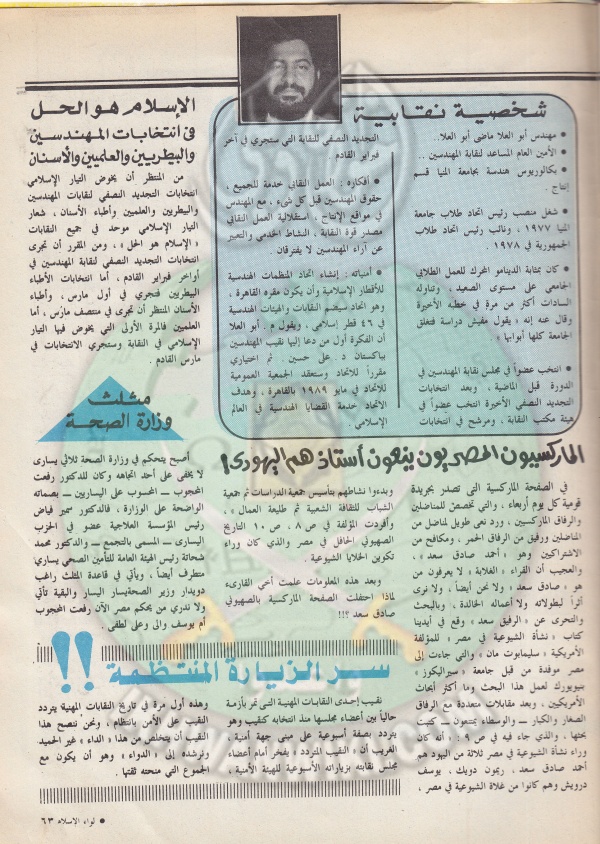 شخصية نقابية
● مهندس أبو العلا ماضى أبو العلا..
● الأمين العام المساعد لنقابة المهندسين ..
● بكالوريوس هندسة بجامعة المنيا قسم
إنتاج .
● شغل منصب رئيس اتحاد طلاب جامعة
المنيا ١٩٧٧ ، ونائب رئيس اتحاد طلاب
الجمهورية في ١٩٧٨ .
● كان بمثابة الدينامو المحرك للعمل الطلابي
الجامعي على مستوى الصعيد ، وتناوله
السادات أكثر من مرة في خطبه الأخيرة
وقال عنه إنه « يقول مفيش دراسة فتغلق
الجامعة كلها أبوابها » .
● انتخب عضواً في مجلس نقابة المهندسين في
الدورة قبل الماضية ، وبعد انتخابات
التجديد النصفي الأخيرة انتخب عضواً في
هيئة مكتب النقابة ، ومرشح في انتخابات
التجديد النصفي للنقابة التي ستجري في آخر
فبراير القادم .
● أفكاره : العمل النقابي خدمة للجميع ،
حقوق المهندسين قبل كل شيء ، مع المهندس
في مواقع الإنتاج ، استقلالية العمل النقابي
مصدر قوة النقابة ، النشاط الخدمي والتعبير
عن آراء المهندسين لا يفترقان .
● أمنياته : إنشاء اتحاد المنظمات الهندسية
للأقطار الإسلامية وأن يكون مقره القاهرة ،
وهو اتحاد سيضم النقابات والهيئات الهندسية
في ٤٦ قطر إسلامي ، ويقول م . أبو العلا
أن الفكرة أول من دعا إليها نقيب المهندسين
بباكستان د . علي حسين . تم اختياري
مقرراً للاتحاد وستعقد الجمعية العمومية
للاتحاد في مايو ١٩٨٩ بالقاهرة ، وهدف
الاتحاد خدمة القضايا الهندسية في العالم
الإسلامي
الإسلام هو الحل
فى انتخابات المهندسين
والبيطريين والعلميين والأسنان
من المنتظر أن يخوض التيار الإسلامي
انتخابات التجديد النصفي لنقابات المهندسين
والبيطريين والعلميين وأطباء الأسنان ، شعار
التيار الإسلامي موحد في جميع النقابات
« الإسلام هو الحل » ، ومن المقرر أن تجرى
انتخابات التجديد النصفي لنقابة المهندسين في
أواخر فبراير القادم ، أما انتخابات الأطباء
البيطريين فتجري في أول مارس ، وأطباء
الأسنان المنتظر أن تجرى في منتصف مارس ، أما
العلميين فالمرة الأولى التي يخوض فيها التيار
الإسلامي في النقابة وستجري الانتخابات في
مارس القادم .
مثلث
وزارة الصحة
أصبح يتحكم في وزارة الصحة ثلاثي يسارى
لا يخفى على أحد اتجاهه وكان للدكتور رفعت
المحجوب ــ المحسوب على اليساريين ــ بصماته
الواضحة على الوزارة ، فالدكتور سمير فياض
رئيس المؤسسة العلاجية عضو في الحزب
اليسارى ــ المسمى بالتجمع ــ والدكتور محمد
شحاتة رئيس الهيئة العامة للتأمين الصحي يساري
متطرف أيضاً ، ويأتي في قاعدة المثلث راغب
دويدار وزير الصحة يسار اليسار والبقية تأتي
ولا ندري من يحكم مصر الآن رفعت المحجوب
أم يوسف والى وعلى لطفى .
الماركسيون المصريون ينعون أستاذهم اليهودى !
في الصفحة الماركسية التي تصدر بجريدة
قومية كل يوم أربعاء ، والتي تخصص للمناضلين
والرفاق الماركسيين ، ورد نعي طويل لمناضل من
المناضلين ورفيق من الرفاق الحمر ، ومكافح من
الاشتراكيين وهو « أحمد صادق سعد » ،
والعجيب أن القراء « الغلابة » لا يعرفون من
هو « صادق سعد » ولا نحن أيضاً ، ولا نرى
أثراً لبطولاته ولا أعماله الخالدة ، وبالبحث
والتحرى عن « الرفيق سعد » وقع في أيدينا
كتاب « نشأة الشيوعية في مصر » للمؤلفة
الأمريكية « سليمابوت مان » والتي جاءت إلى
مصر موفدة من قبل جامعة « سيراليكوز »
بنيويورك لعمل هذا البحث وما أكثر أبحاث
الأمريكيين ، وبعد مقابلات متعددة مع الرفاق
الصغار والكبار ــ والوسطاء يمتنعون ــ كتبت
بحثها ، والذي جاء فيه في ص ٩ : « أنه كان
وراء نشأة الشيوعية في مصر ثلاثة من اليهود هم
أحمد صادق سعد ، ريمون دويك ، يوسف
درويش وهم كانوا من غلاة الشيوعية في مصر ،
وبدءوا نشاطهم بتأسيس جمعية الدراسات ثم جمعية
الشباب للثقافة الشعبية ثم طليعة العمال » ،
وأفردت المؤلفة في ص ٨ ، ص ١٠ التاريخ
الصهيوني الحافل في مصر والذي كان وراء
تكوين الخلايا الشيوعية .
وبعد هذه المعلومات علمت أخي القارىء
لماذا احتفلت الصفحة الماركسية بالصهيوني
صادق سعد ؟!!
سر الزيارة المنتظمة !!
نقيب إحدى النقابات المهنية التي تمر بأزمة
حالياً بين أعضاء مجلسها منذ انتخابه كنقيب وهو
يتردد بصفة أسبوعية على مبنى جهة أمنية ،
الغريب أن « النقيب المتردد » يفخر أمام أعضاء
مجلس نقابته بزياراته الأسبوعية للهيئة الأمنية ،
وهذه أول مرة في تاريخ النقابات المهنية يتردد
النقيب على الأمن بانتظام ، ونحن ننصح هذا
النقيب أن يتخلص من هذا « الداء » غير الحميد
ونرشده إلى « الدواء » وهو أن يكون مع
الجموع التي منحته ثقتها .
● لواء الإسلام ٦٣